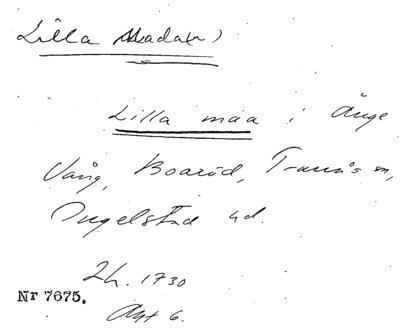 Lilla
Lilla maa i Änge
Vång, Boaröd, Tranås sn,
Ingelstad hd.
Lh. 1730
Nr 7675.
Akt 6.